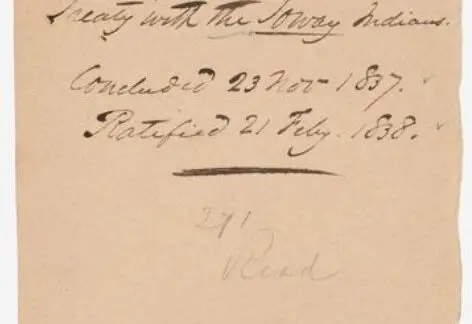 Treaty with the Ioway Indians.
Concluded 23 Nov 1837.
Ratified 21 Feby. 1838.
271
Read